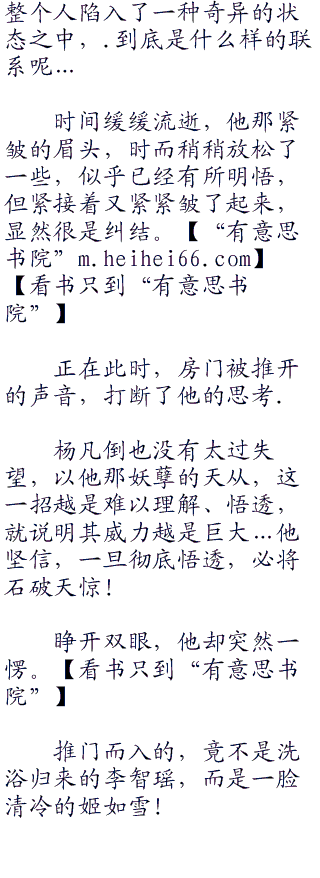 整个人陷入了一种奇异的状
态之中，.到底是什么样的联
系呢…
时间缓缓流逝，他那紧
皱的眉头，时而稍稍放松了
一些，似乎已经有所明悟，
但紧接着又紧紧皱了起来，
显然很是纠结。【“有意思
书院”m.heihei66.com】
【看书只到“有意思书
院”】
正在此时，房门被推开
的声音，打断了他的思考.
杨凡倒也没有太过失
望，以他那妖孽的天从，这
一招越是难以理解、悟透，
就说明其威力越是巨大…他
坚信，一旦彻底悟透，必将
石破天惊！
睁开双眼，他却突然一
愣。【看书只到“有意思书
院”】
推门而入的，竟不是洗
浴归来的李智瑶，而是一脸
清冷的姬如雪！